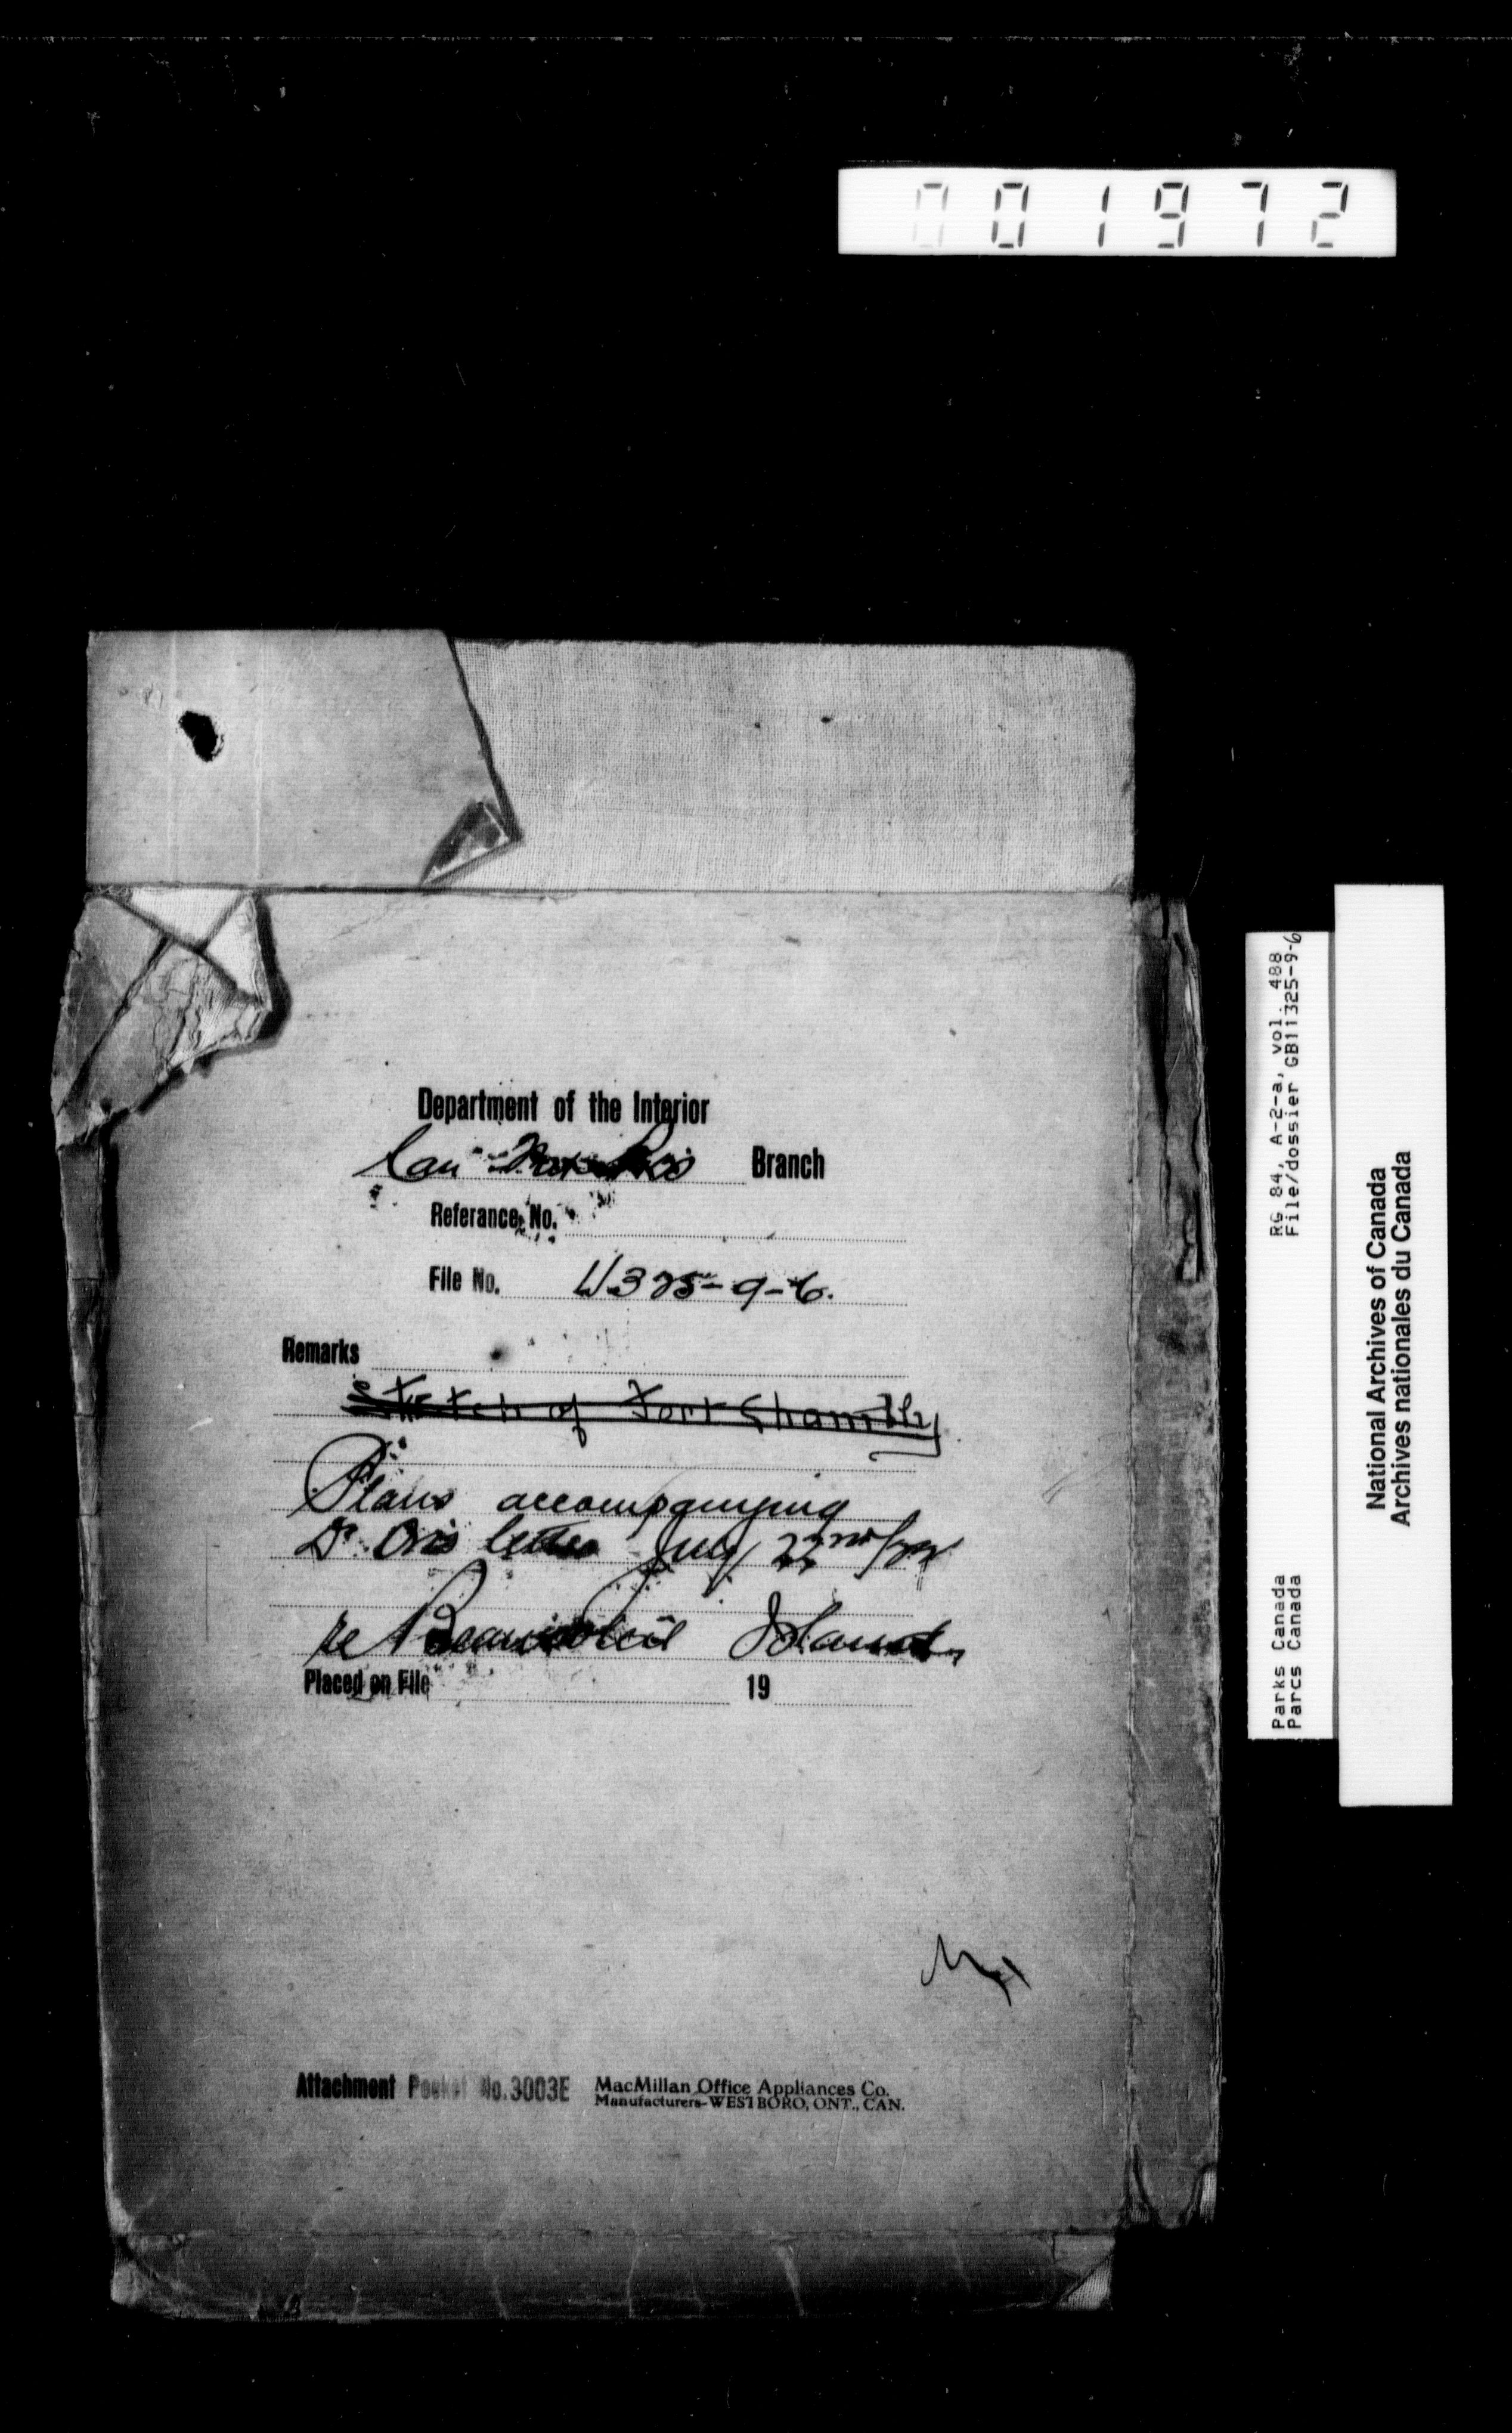 001972
Department of the Interior
Can Nat Parks Branch
Referance No.
File No. U325-9-6.
Remarks
Sketch of Fort Chambly
Plans accompanying
Dr. Orr's letter July 22nd/22
re Beausoleil Island.
Placed on File 19
Attachment Pocket No. 3003E MacMillan Office Appliances Co.
Manufacturers-WESTBORO, ONT., CAN.
RG 84, A-2-a, vol. 488
File/dossier GB11325-9-6
Parks Canada
Parcs Canada
National Archives of Canada
Archives nationales du Canada